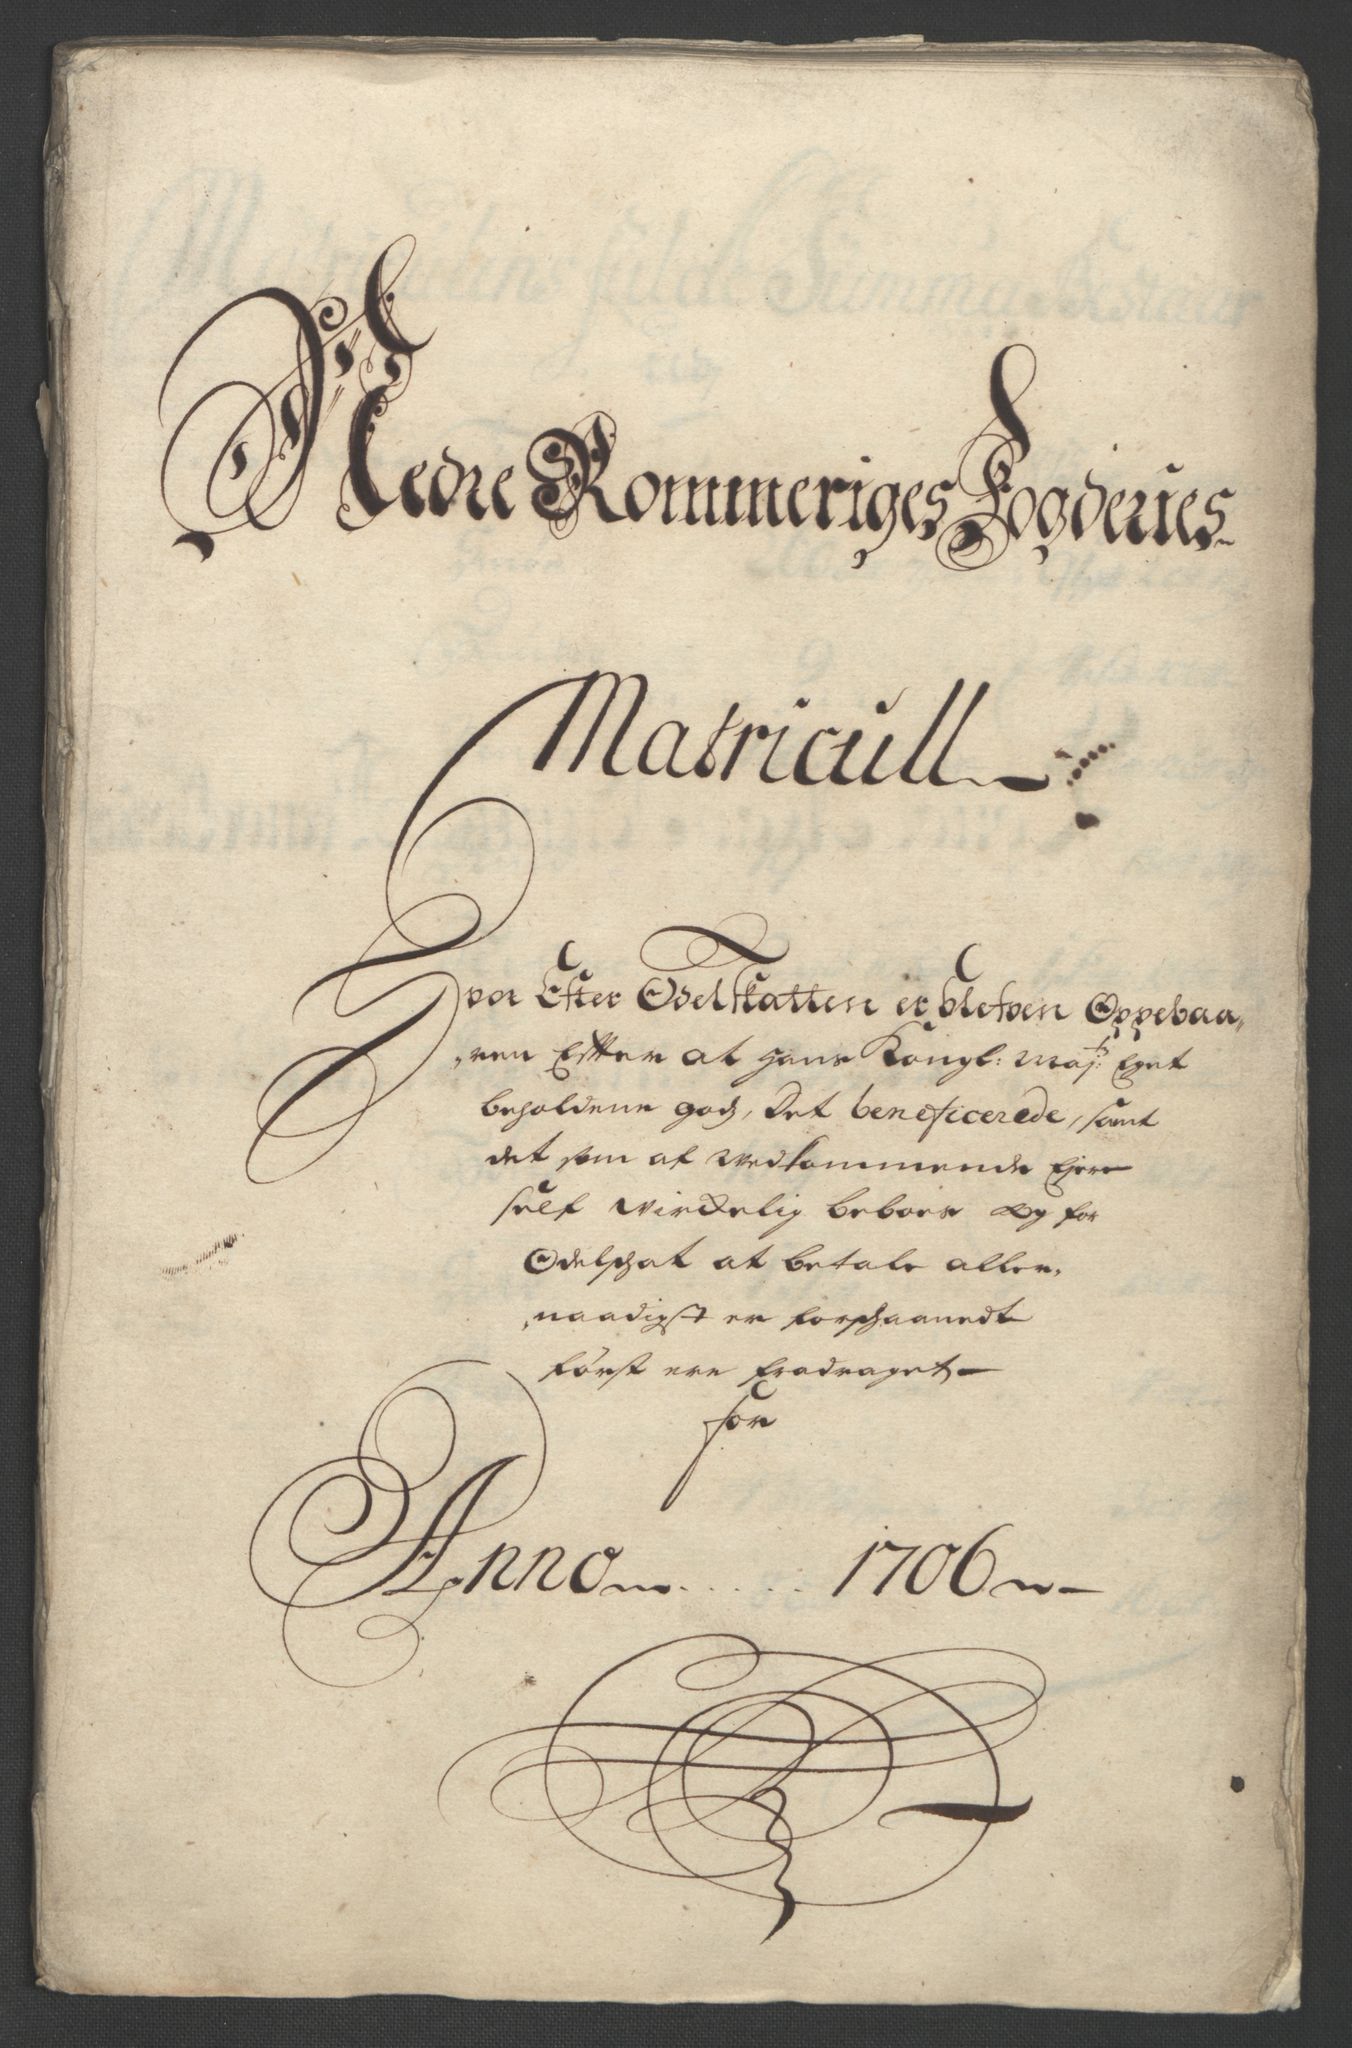 Nedre Rommeriges Fogderies
Matricull
Hvor Efter Odelskatten er blefven Oppebaa,,
,,ren Efter at hans Kongl: Maj:ts Eget
beholdene godz, Det beneficerede, samt
det som af wedkommende Ejere
self wirckelig beboes og for
Odelschat at betale aller,,
,,naadigst er forschaanedt
først ere fradraget
for
Anno ..... 1706